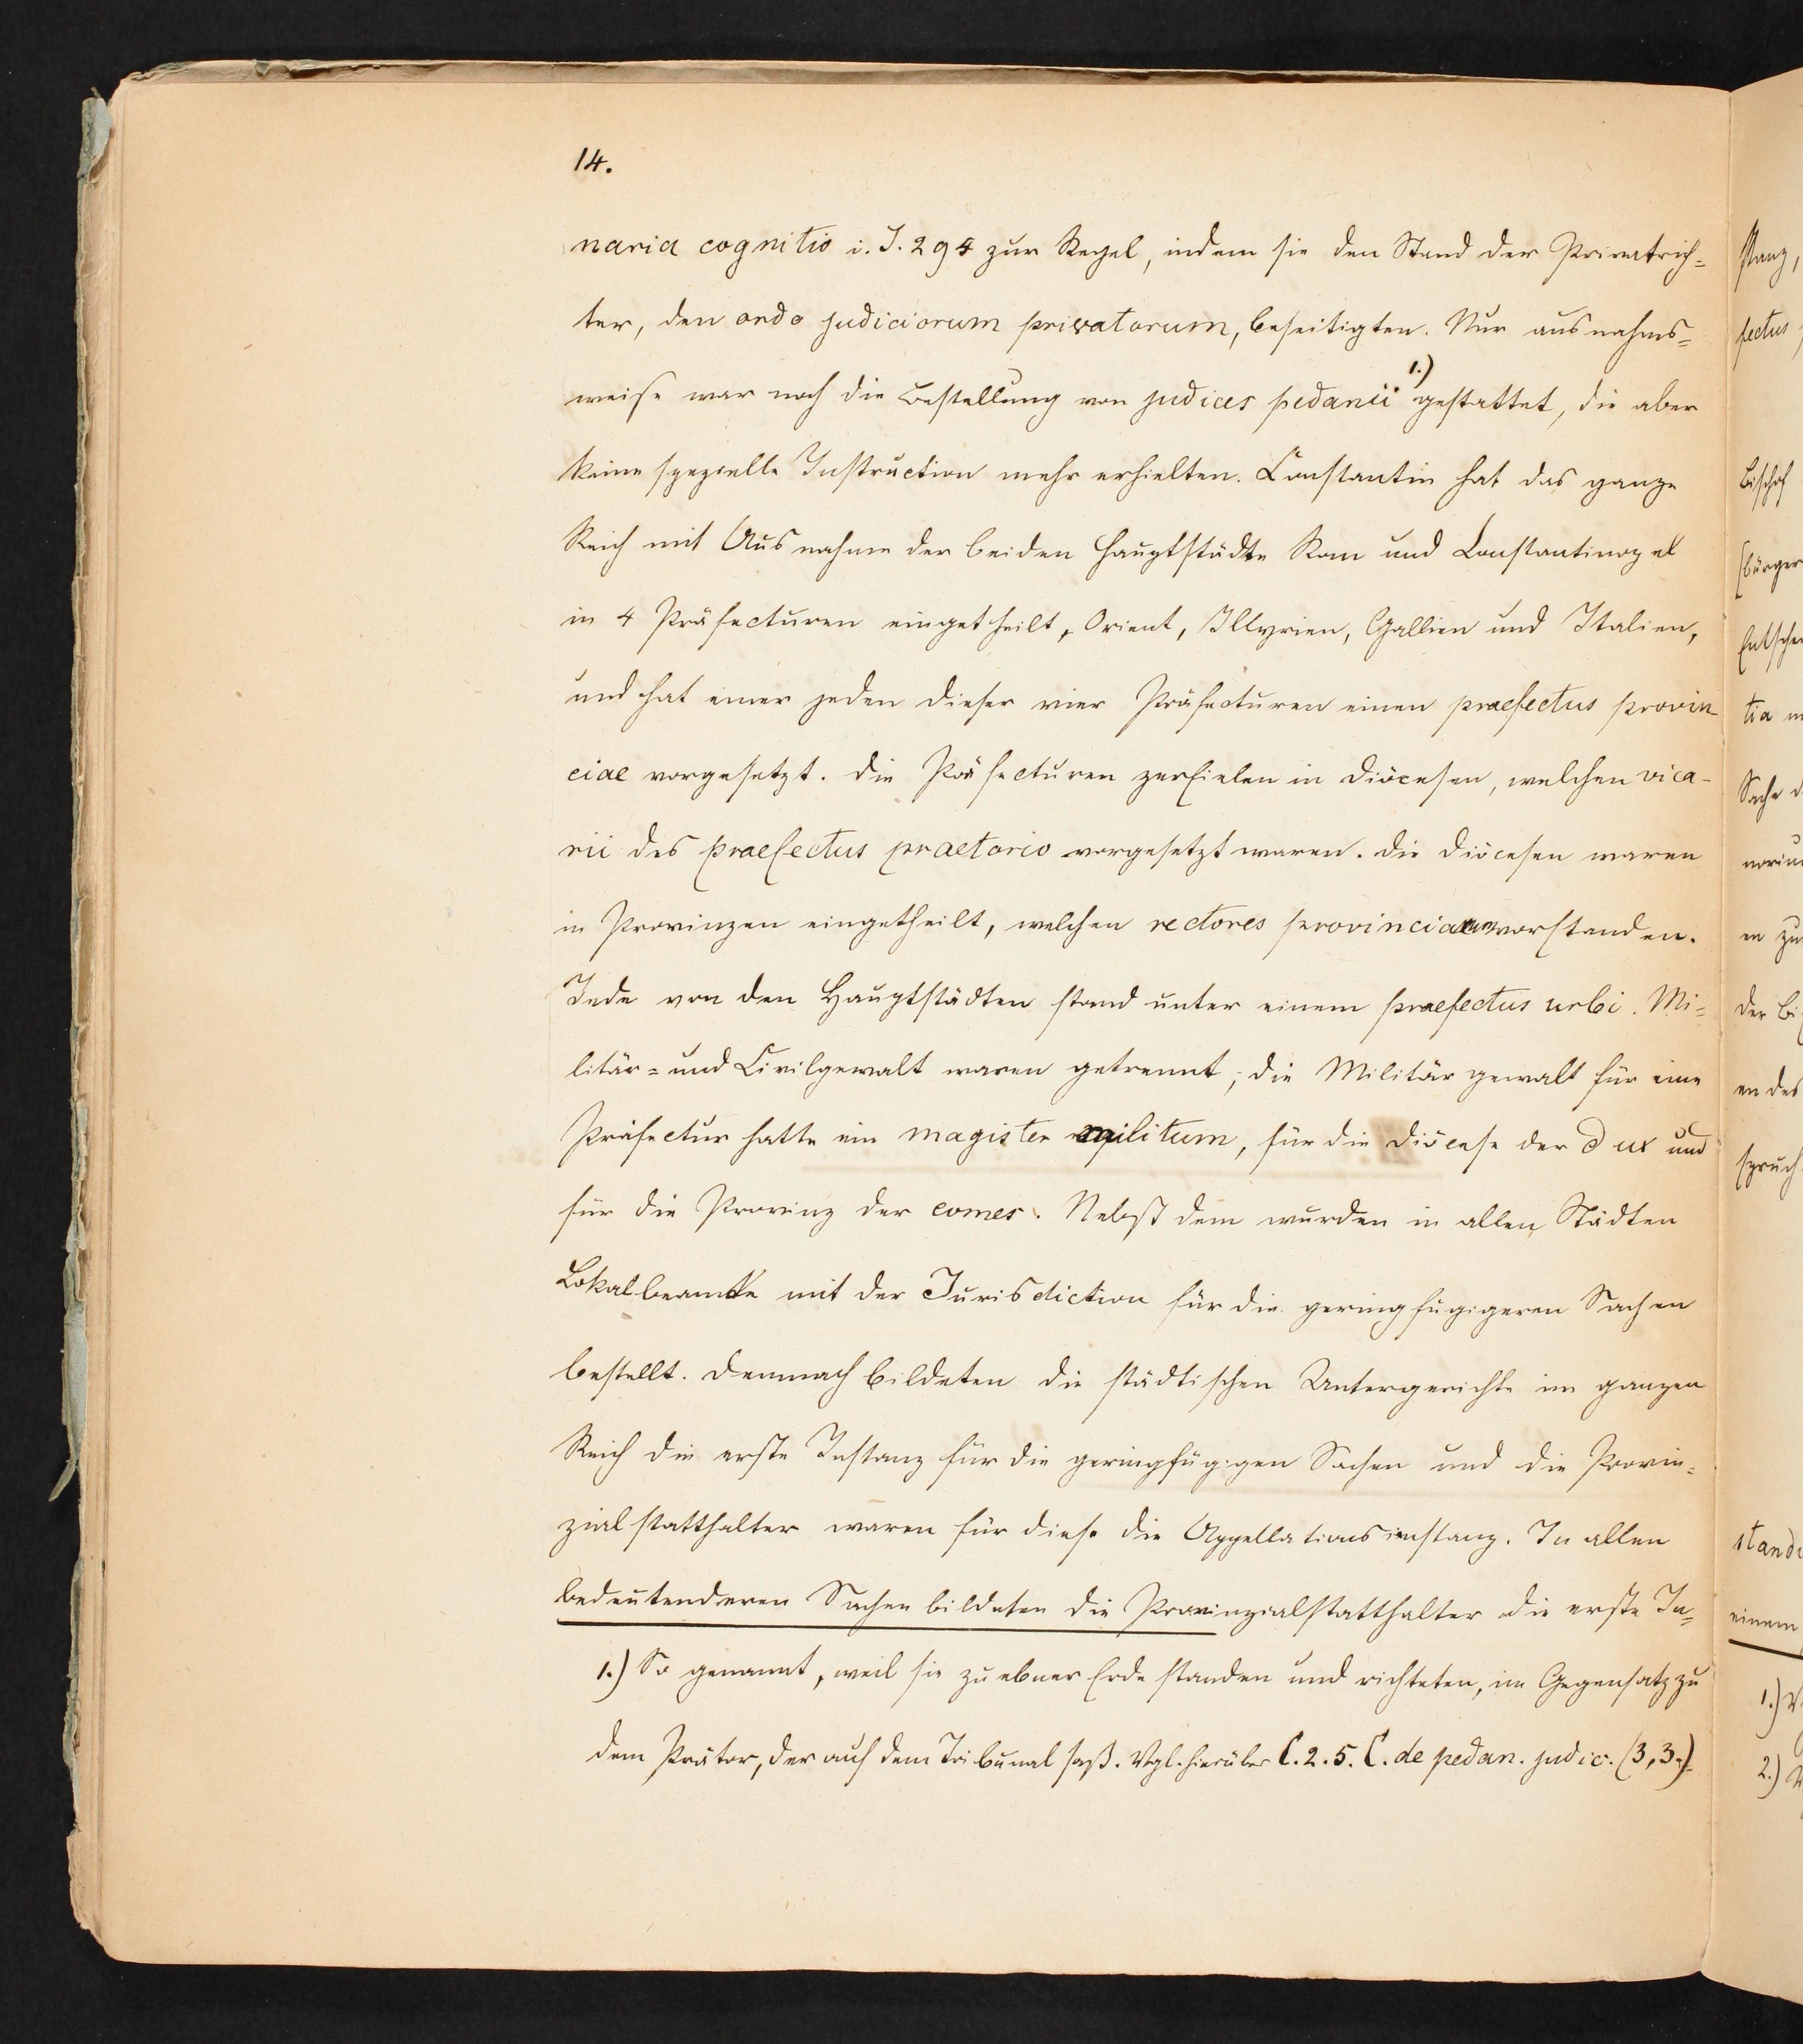 14.
naria cognitio i. J. 294 zur Regel, indem sie den Stand der Privatrich=
ter, den ordo judiciorum privatorum, beseitigten. Nur ausnahms=
weise war noch die Bestellung von judices pedanii 1.) gestattet, die aber
keine spezielle Instruction mehr erhielten. Constantin hat das ganze
Reich mit Ausnahme der beiden Hauptstädte Rom und Constantinopel
in 4 Präfecturen eingetheilt, Orient, Illyrien, Gallien und Italien,
und hat einer jeden dieser vier Präfecturen einen praefectus provin-
ciae vorgesetzt. Die Präfecturen zerfielen in Diöcesen, welchen vica-
rii des praefectus praetorio vorgesetzt waren. Die Diöcesen waren
in Provinzen eingetheilt, welchen rectores provinciarum vorstanden.
Jede von den Hauptstädten stand unter einem praefectus urbi. Mi=
litär= und Civilgewalt waren getrennt; die Militärgewalt für eine
Präfectur hatte ein magister militum, für die Diöcese der dux und
für die Provinz der comes. Nebst dem wurden in allen Städten
Lokalbeamte mit der Jurisdiction für die geringfügigeren Sachen
bestellt. Demnach bildeten die städtischen Untergerichte im ganzen
Reich die erste Instanz für die geringfügigen Sachen und die Provin=
zialstatthalter waren für diese die Appellationsinstanz. In allen
bedeutenderen Sachen bildeten die Provinzialstatthalter die erste In=
1.) So genannt, weil sie zu ebner Erde standen und richteten, im Gegensatz zu
dem Prätor, der auf dem Tribunal saß. Vgl. hierüber C. 2. 5. C. de pedan. judic. (3,3.)
stanz,
fectus
Bischof
(bürger
Entsche
tia
Sache
en zu
der
en des
spruch
stand
einem
1.)
2.)